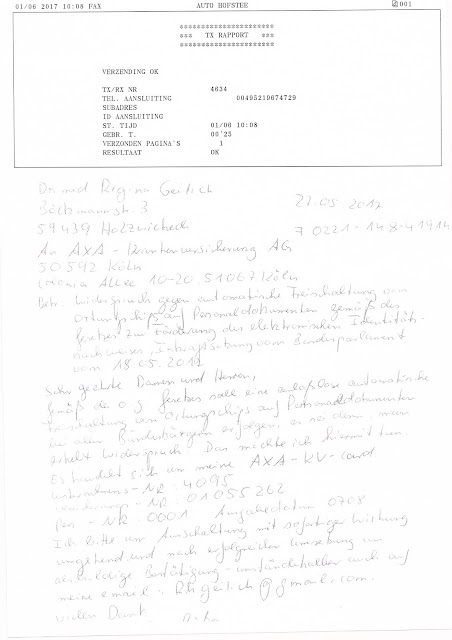 01/06 2017 10:08 FAX AUTO HOFSTEE 001
************************
*** TX RAPPORT ***
************************
VERZENDING OK
TX/RX NR 4634
TEL. AANSLUITING 00495219674729
SUBADRES
ID AANSLUITING
ST. TIJD 01/06 10:08
GEBR. T. 00'25
VERZONDEN PAGINA'S 1
RESULTAAT OK
Dr. med Regina Geitlich
27.05.2017
59439 Holzwickede
An AXA - Krankenversicherung AG
50592 Köln
Colonia Allee 10-20, 51067 Köln
Betr. Widerspruch gegen automatische Freischaltung von
Ortungschips auf Personaldokumenten gemäß des
Gesetzes zur Förderung des elektronischen Identitäts-
nachweises, vom Bundesparlament
vom 18.05.2017
Sehr geehrte Damen und Herren,
gemäß de o.g. Gesetzes soll eine anlaßlose automatische
Freischaltung von Ortungschips auf Personaldokumenten
bei allen Bundesbürgern erfolgen, es sei denn, man
erhebt Widerspruch. Das möchte ich hiermit tun.
Es handelt sich um meine AXA-KV-Card
Unternehmens-NR. 4095
NR. 01055262
Pers.-NR. 0001 Ausgabedatum 0708
Ich bitte um Ausschaltung mit sofortiger Wirkung
umgehend und nach erfolgreicher Umsetzung um
Bestätigung - umständehalber auch auf
meine email: @gmail.com.
Vielen Dank